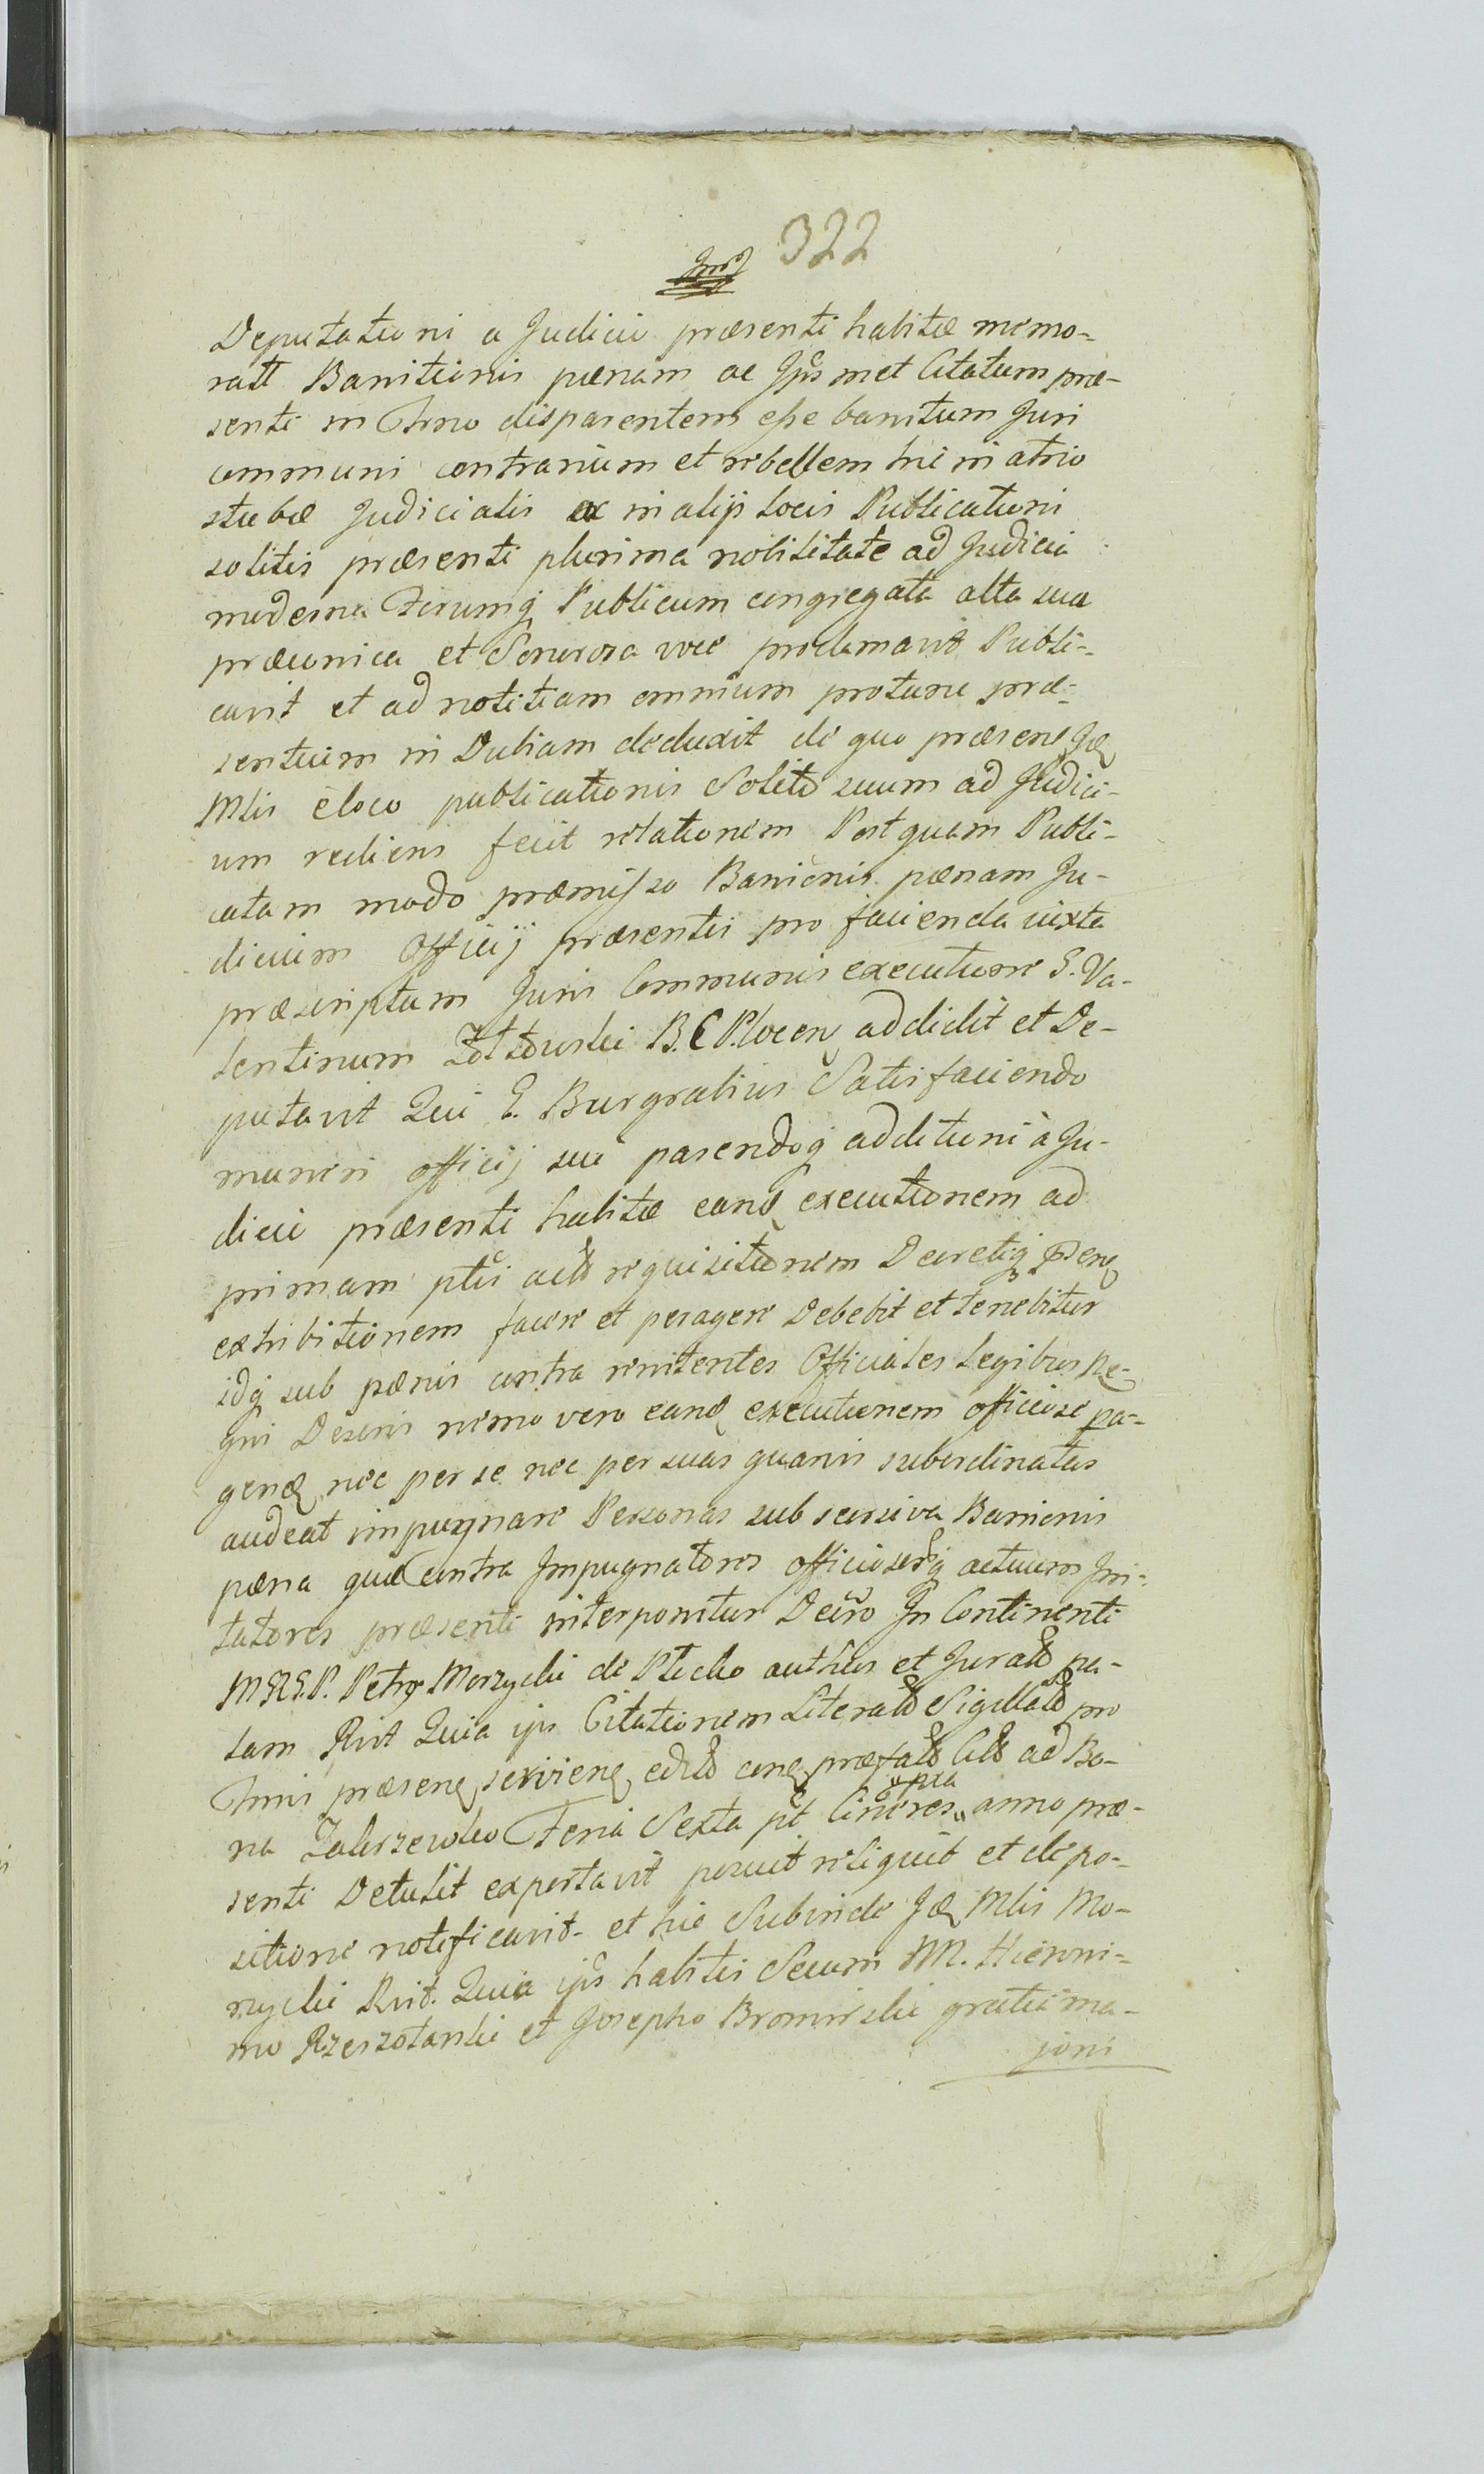 322
Deputationi a Judicio præsenti habitæ memo-
ratt Banitionis pænam ac Jpsmet Citatum præ-
senti in Thno disparentem esse banitum Juri
communi contrarium et rebellem hic in atrio
stubæ Judicialis ac in alijs locis Publicationi
solitis præsenti plurima nobilitate ad Judicia
moderna Forumq Publicum congregata alta sua
præconica et Sonorosa voce proclamavit Publi-
cavit et ad notitiam omnium protunc præ-
sentium in Dubiam deduxit de quo præsens Jdæ
Mlis e loco publicationis Solito suum ad Judici-
um rediens fecit relationem Post quam Publi-
catam modo præmisso Banionis pænam Ju-
dicium Officij præsentis pro facienda iuxta
præscriptum Juris Communis executione G. Va-
lentinum Żołtowski B. C Plocen addidit et De-
putavit Qui G. Burgrabius Satisfaciendo
muneri officij sui parendoq additioni à Ju-
dicio præsenti habitæ eand executionem ad
primam ptis act requisitionem Decretiq pden
exhibitionem facere et peragere Debebit et tenebitur
idq sub pænis contra renitentes Officiales Legibus Re-
gni Descris nemo vero eand executionem officiose pa-
gend nec per se nec per suas quavis subordinatas
audeat impugnare Personas sub scissiva Banionis
pæna quæ Contra Jmpugnatores officioserq actuum Jrri-
tatores præsenti interponitur Decro Jn Continenti
MRGP. Petrq Morzycki de Plecko authen et Jurat pa-
lam Rvit Quia ips Citationem Literat Sigillat pro
Thnis præsen servien edit con præfat Cit ad Bo-
na Zakrzewko Feria Sexta pt Cineres anno præ-
senti Detulit exportavit posuit reliquit et depo-
sitione notificavit. et hic Subinde Jdæ Mlis Mo-
rzycki Rvit. Quia ips habitis Secum NN. Hieroni-
mo Rzeszotarski et Josepho Bromirski gratii ma-
joris